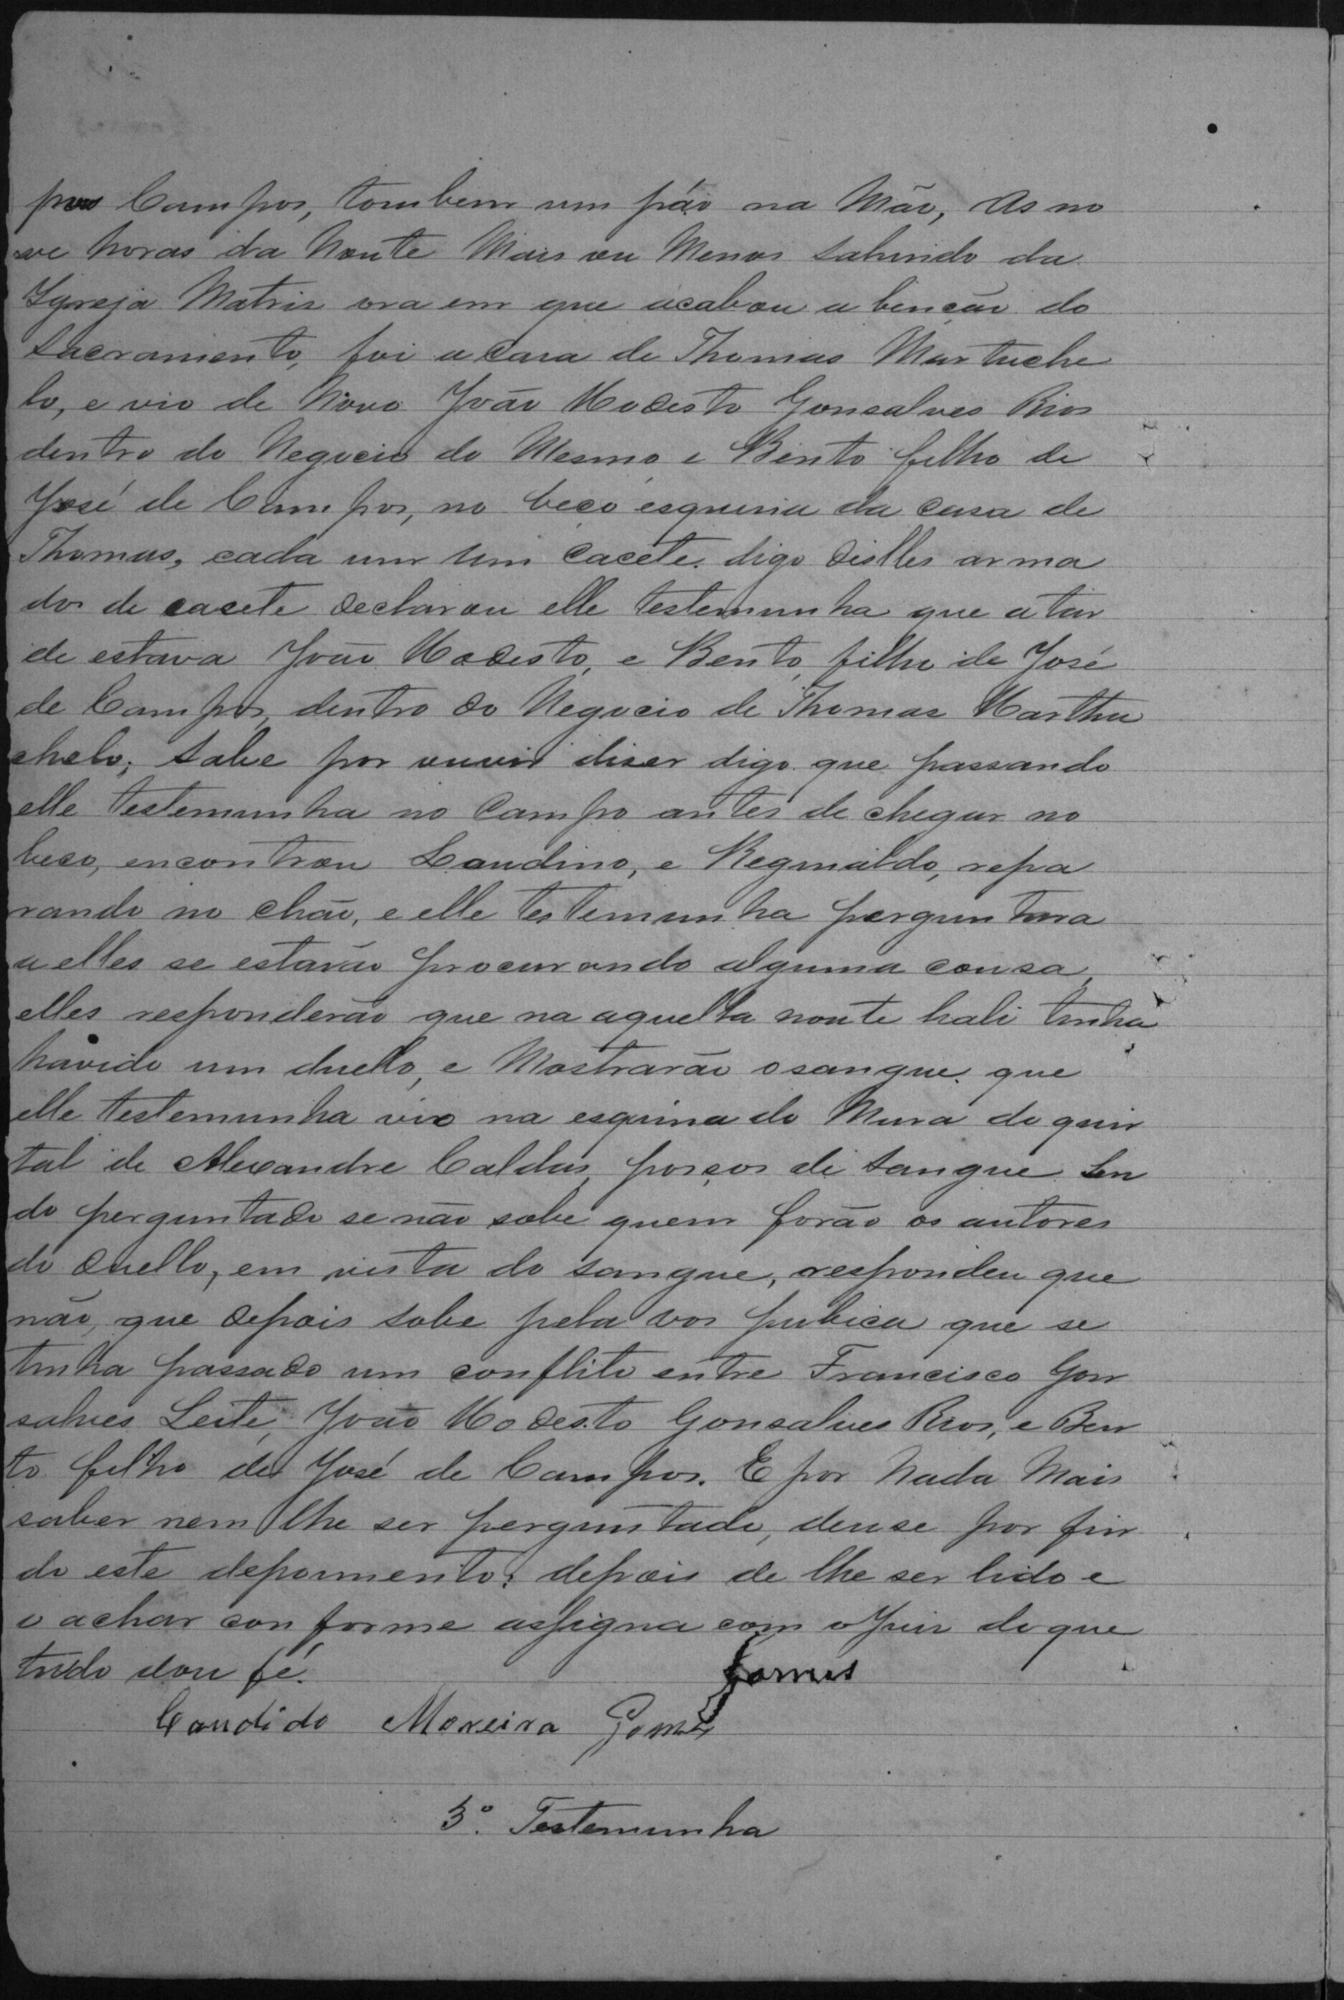 pos Campos, tombem um páo na Mão, As no
ve horas da Noute Mais ou Menos Sahindo da
Ygreja Matris ora em que acabou a bencão do
Sacramento, foi a casa de Thomas Martuche
lo, e vio de Novo João Modesto Gonsalves Rios
dentro do Negocio do Mesmo e Bento filho de
José de Campos, no beco esquina da casa de
Thomas, cada um Um Cacete. digo Delles arma
dos de cacete Declarou elle testemunha que a tar
de estava João Modesto, e Bento, filho de José
de Campos, dentro do Negocio de Thomas Marthu
chelo; Sabe por ouvir diser digo que passando
elle testemunha no Campo antes de chegar no
beco, encontrou Laudino, e Reginaldo, repa
rando no chão, e elle testemunha perguntara
a elles se estavão procurando alguma cousa,
elles responderão que na aquella noute hali tinha
havido um duello, e Mostrarão o sangue. que
elle testemunha vio na esquina do Mura do quin
tal de Alexandre Caldas, porços de Sangue Sen
do perguntado se não sabe quem forão os autores
do Duello, em vista do sangue, respondeu que
não, que Depois sobe pela vos pubica que se
tinha passado um conflito entre Francisco Gon
salves Leite, João Modesto Gonsalves Rios, e Ben
to filho de José de Campos. E por Nada Mais
saber nem lhe ser perguntado, deu se por fin
do este depoimento; depois de lhe ser lido e
o achar conforme assigna com o Juis do que
tudo dou fé.
Gomes
Candido Moreira Gomes
3º. Testemunha